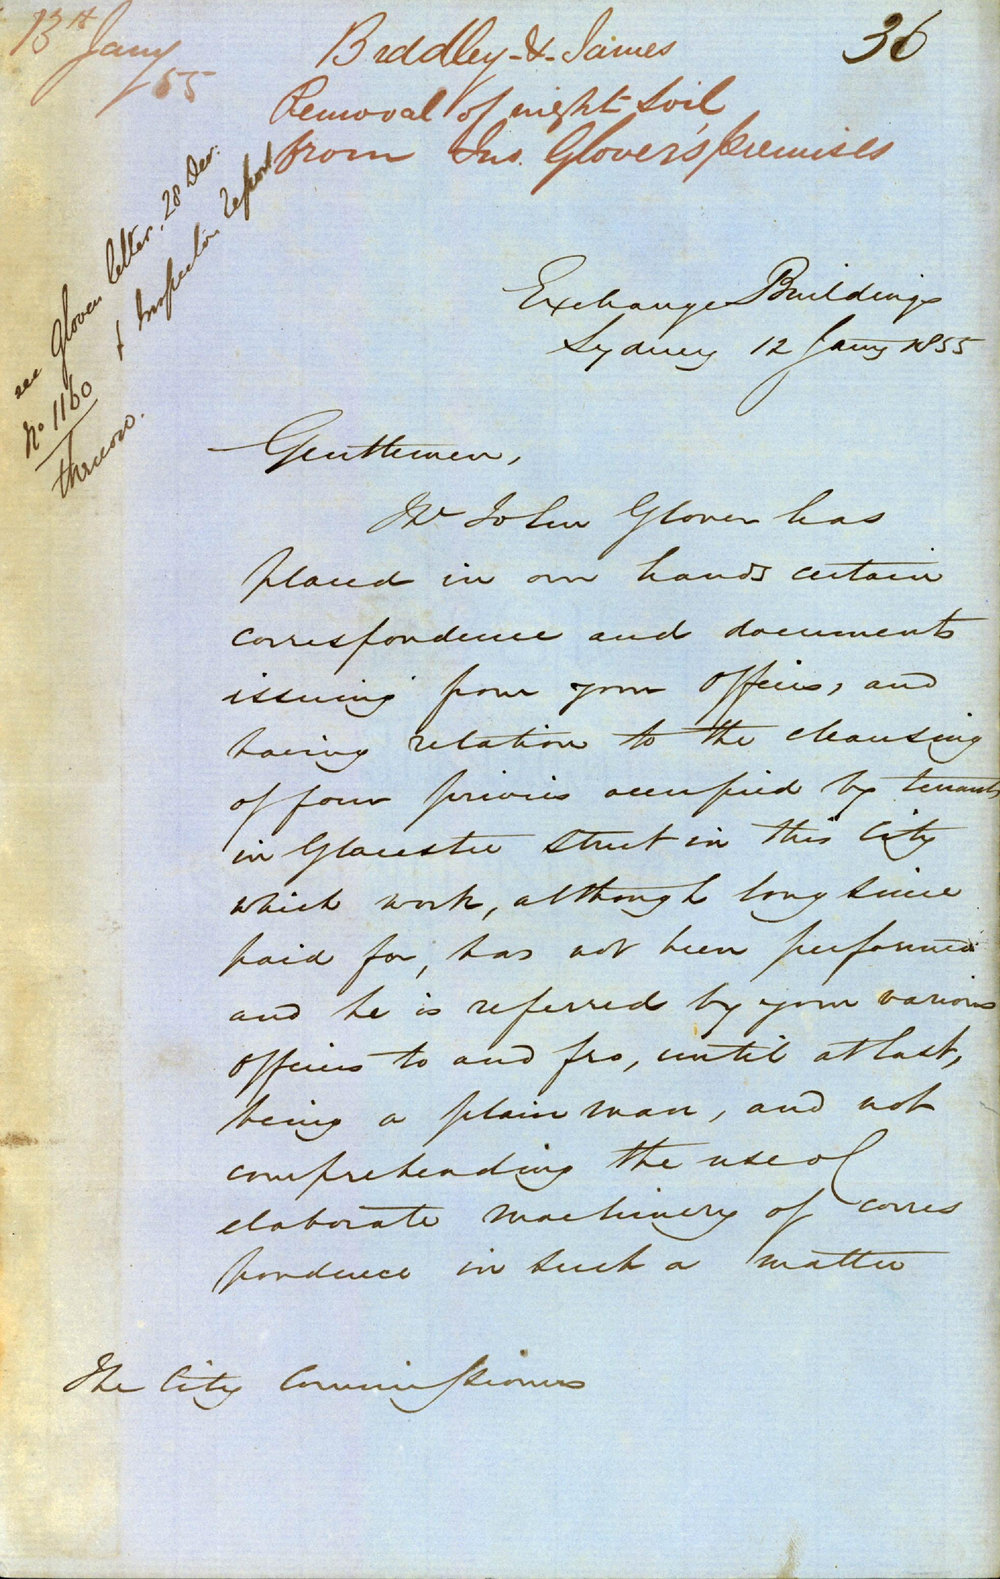 13th Jany
/55
Briddley & James
36
Removal of night soil
from Jno. Glover's premises
see Glover letter, 28 Dec.
No 1160 & Inspector Report
thereon.
Exchange Buildings
Sydney 12 Jany 1855
Gentlemen,
Mr John Glover has
placed in our hands certain
correspondence and documents
issuing from your offices, and
having relation to the cleansing
of four privies occupied by tenants
in Gloucester Street in this City
which work, although long since
paid for, has not been performed
and he is referred by your various
officers to and fro, until at last,
being a plain man, and not
comprehending the use of
elaborate machinery of corres
pondence in such a matter
The City Commissioners